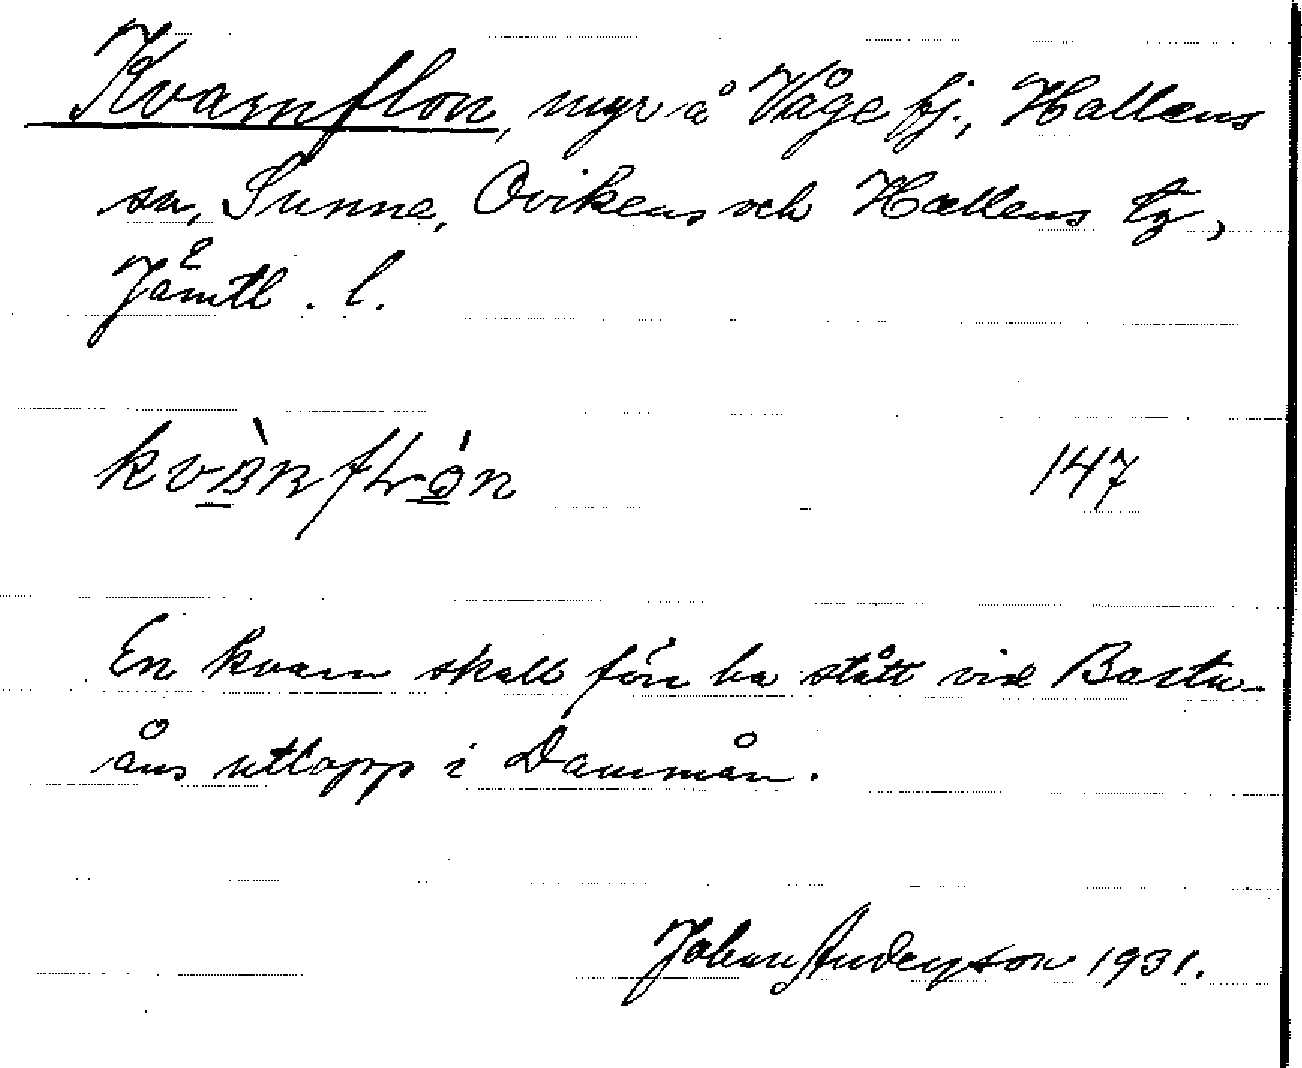 Kvarnflon, myr å Våge fj., Hallens
sn, Sunne, Ovikens och Hallens tg,
Jämtl. l.
147
En kvarn skall förr ha stått vid Bastu-
åns utlopp i Dammån.
Johan Anderson 1931.